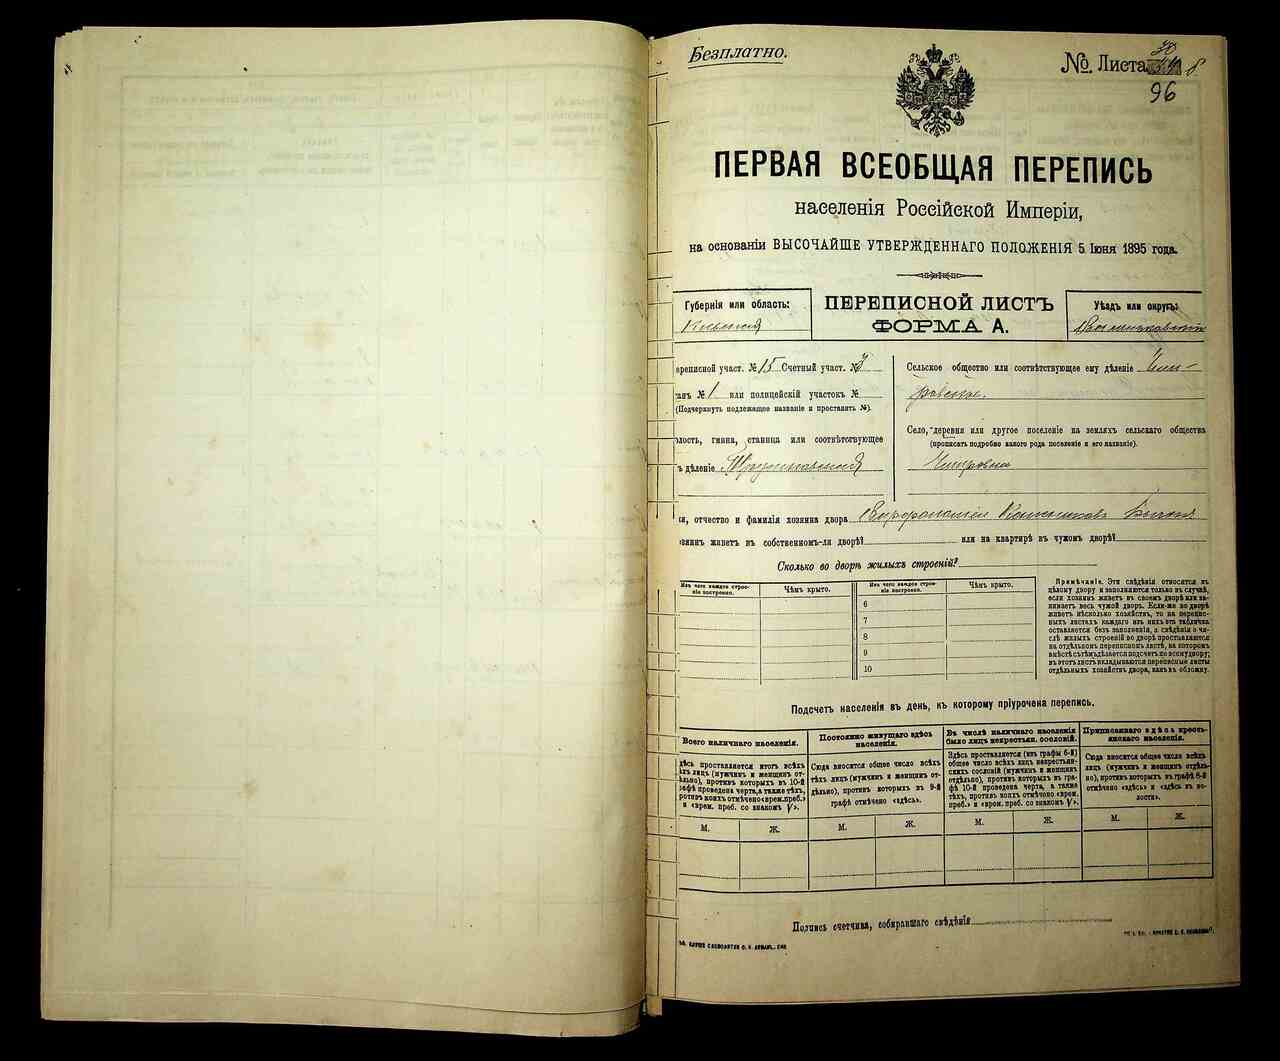 Безплатно.
№ Листа
96
ПЕРВАЯ ВСЕОБЩАЯ ПЕРЕПИСЬ
населенія Россійской Имперіи,
на основаніи ВЫСОЧАЙШЕ УТВЕРЖДЕННАГО ПОЛОЖЕНІЯ 5 Іюня 1895 года.
Губернія или область:
Кіевская
ПЕРЕПИСНОЙ ЛИСТЪ
ФОРМА А.
Уѣздъ или округъ:
Васильковскій
ереписной участ. № 15 Счетный участ. № 3
анъ № 1 или полицейскій участокъ №
(Подчеркнуть подлежащее названіе и проставить №).
олость, гмина, станица или соотвѣтствующее
ъ дѣленіе
Сельское общество или соотвѣтствующее ему дѣленіе
Село, деревня или другое поселеніе на земляхъ сельскаго общества
(прописать подробно какого рода поселеніе и его названіе).
я, отчество и фамилія хозяина двора
озяинъ живетъ въ собственномъ-ли дворѣ? или на квартирѣ въ чужомъ дворѣ?
Сколько во дворѣ жилыхъ строеній?
Изъ чего каждое строе-
ніе построено.
Чѣмъ крыто.
Изъ чего каждое строе-
ніе построено.
Чѣмъ крыто.
6
7
8
9
10
Примѣчаніе. Эти свѣдѣнія относятся къ
цѣлому двору и заполняются только въ случаѣ,
если хозяинъ живетъ въ своемъ дворѣ или за-
нимаетъ весь чужой дворъ. Если-же во дворѣ
живетъ нѣсколько хозяйствъ, то на перепис-
ныхъ листахъ каждаго изъ нихъ эта табличка
оставляется безъ заполненія, а свѣдѣнія о чи-
слѣ жилыхъ строеній во дворѣ проставляются
на отдѣльномъ переписномъ листѣ, на которомъ
вмѣстѣ съ тѣмъ дѣлается подсчетъ по всему двору;
въ этотъ листъ вкладываются переписные листы
отдѣльныхъ хозяйствъ двора, какъ въ обложку.
Подсчетъ населенія въ день, къ которому пріурочена перепись.
Всего наличнаго населенія.
здѣсь проставляется итогъ всѣхъ
хъ лицъ (мужчинъ и женщинъ от-
ѣльно), противъ которыхъ въ 10-й
рафѣ проведена черта, а также тѣхъ,
ротивъ коихъ отмѣчено «врем. преб.»
и «врем. преб. со знакомъ V».
Постоянно живущаго здѣсь
населенія.
Сюда вносится общее число всѣхъ
тѣхъ лицъ (мужчинъ и женщинъ от-
дѣльно), противъ которыхъ въ 9-й
графѣ отмѣчено «здѣсь».
Въ числѣ наличнаго населенія
было лицъ некрестьян. сословій.
Здѣсь проставляется (изъ графы 6-й)
общее число всѣхъ лицъ некрестьян-
скихъ сословій (мужчинъ и женщинъ
отдѣльно), противъ которыхъ въ гра-
фѣ 10-й проведена черта, а также
тѣхъ, противъ коихъ отмѣчено «врем.
преб.» и «врем. преб. со знакомъ V».
Приписаннаго здѣсь кресть-
янскаго населенія.
Сюда вносится общее число всѣхъ
лицъ (мужчинъ и женщинъ отдѣль-
но), противъ которыхъ въ графѣ 8-й
отмѣчено «здѣсь» и «здѣсь въ во-
лости».
М. Ж. М. Ж. М. Ж. М. Ж.
Подпись счетчика, собиравшаго свѣдѣнія